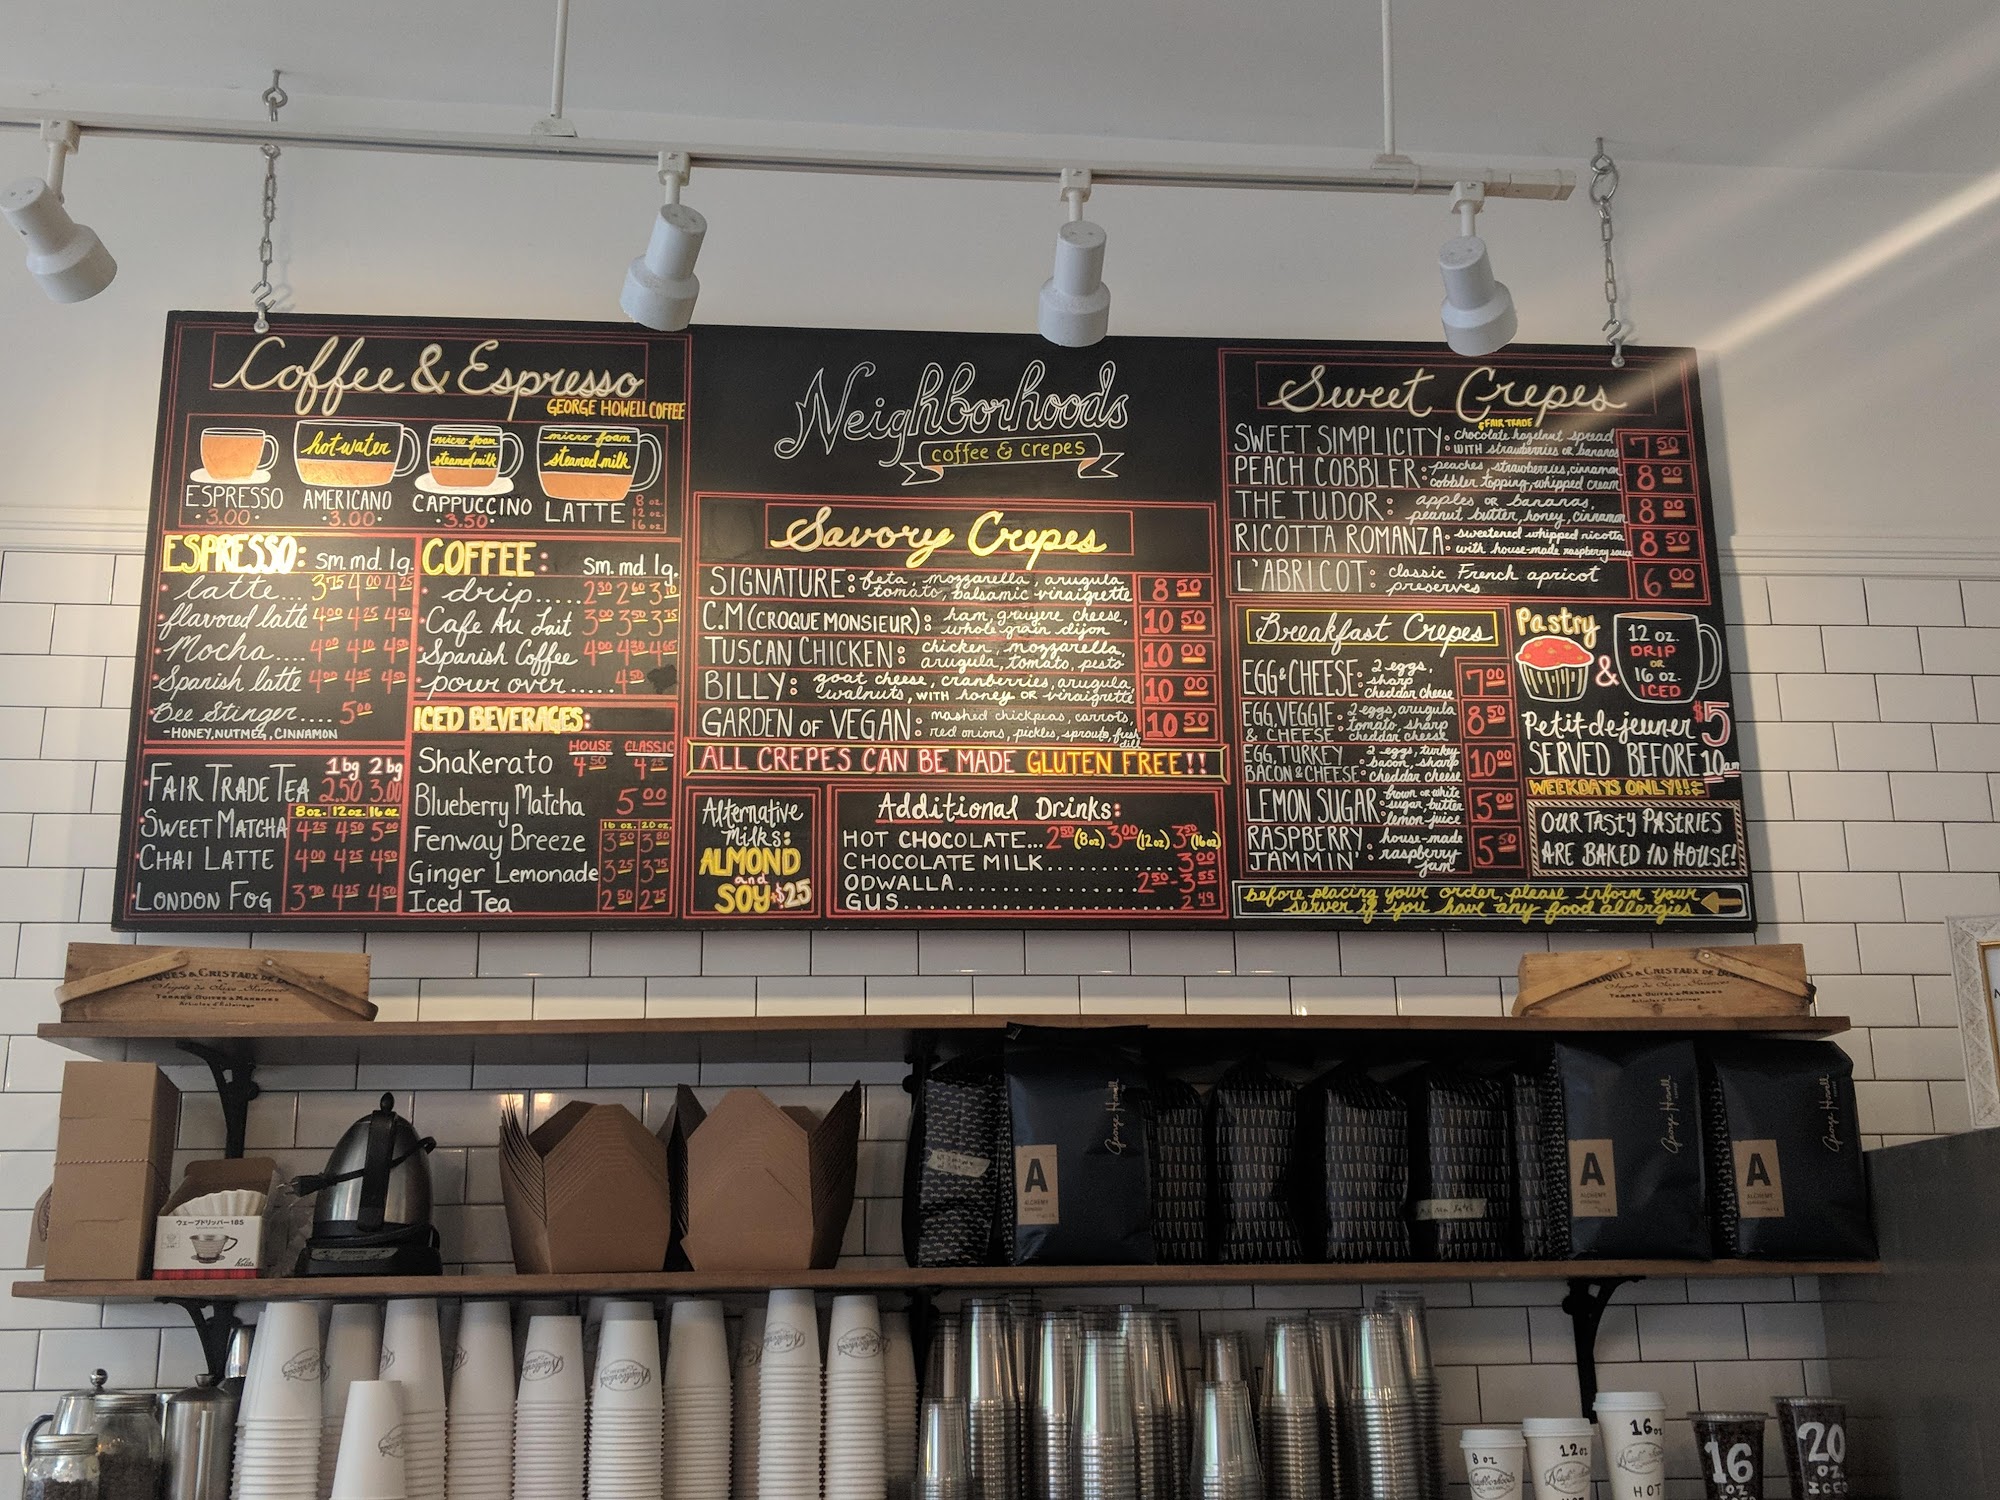 Coffee & Espresso
GEORGE HOWELL COFFEE
hot water
micro foam
steamed milk
micro foam
steamed milk
ESPRESSO
3.00
AMERICANO
3.00
CAPPUCCINO
3.50
LATTE
8 oz.
12 oz.
16 oz.
ESPRESSO: sm. md. lg.
latte... 3.75 4.00 4.25
flavored latte 4.00 4.25 4.50
Mocha.... 4.00 4.10 4.50
Spanish latte 4.00 4.25 4.50
Bee Stinger.... 5.00
-HONEY, NUTMEG, CINNAMON
1 bg 2 bg
FAIR TRADE TEA 2.50 3.00
8oz. 12oz. 16oz.
SWEET MATCHA 4.25 4.50 5.00
CHAI LATTE 4.00 4.25 4.50
LONDON FOG 3.70 4.25 4.50
COFFEE: sm. md. lg.
drip..... 2.30 2.60 3.10
Cafe Au Lait 3.00 3.50 3.75
Spanish Coffee 4.00 4.30 4.65
pour over..... 4.50
ICED BEVERAGES:
HOUSE CLASSIC
Shakerato 4.50 4.25
Blueberry Matcha 5.00
16 oz. 20 oz.
Fenway Breeze 3.50 3.80
Ginger Lemonade 3.25 3.75
Iced Tea 2.50 2.75
Neighborhoods
coffee & crepes
Savory Crepes
SIGNATURE: feta, mozzarella, arugula
tomato, balsamic vinaigrette 8.50
C.M (CROQUE MONSIEUR): ham, gruyere cheese,
whole grain dijon 10.50
TUSCAN CHICKEN: chicken, mozzarella,
arugula, tomato, pesto 10.00
BILLY: goat cheese, cranberries, arugula,
walnuts, WITH honey OR vinaigrette 10.00
GARDEN OF VEGAN: mashed chickpeas, carrots,
red onions, pickles, sprouts, fresh dill 10.50
ALL CREPES CAN BE MADE GLUTEN FREE!!
Alternative
Milks:
ALMOND
and
SOY +$.25
Additional Drinks:
HOT CHOCOLATE... 2.50 (8oz) 3.00 (12oz) 3.50 (16oz)
CHOCOLATE MILK.......... 3.00
ODWALLA.............. 2.50-3.55
GUS.................... 2.49
Sweet Crepes
SWEET SIMPLICITY: FAIR TRADE chocolate hazelnut spread
WITH strawberries OR bananas 7.50
PEACH COBBLER: peaches, strawberries, cinnamon
cobbler topping, whipped cream 8.00
THE TUDOR: apples OR bananas,
peanut butter, honey, cinnamon 8.00
RICOTTA ROMANZA: sweetened whipped ricotta
with house-made raspberry sauce 8.50
L'ABRICOT: classic French apricot
preserves 6.00
Breakfast Crepes
EGG & CHEESE: 2 eggs,
sharp
cheddar cheese 7.00
EGG, VEGGIE & CHEESE: 2 eggs, arugula
tomato, sharp
cheddar cheese 8.50
EGG, TURKEY BACON & CHEESE: 2 eggs, turkey
bacon, sharp
cheddar cheese 10.00
LEMON SUGAR: brown OR white
sugar, butter
lemon-juice 5.00
RASPBERRY JAMMIN': house-made
raspberry
jam 5.50
Pastry
&
12 oz.
DRIP
OR
16 oz.
ICED
Petit dejeuner $5
SERVED BEFORE 10am
WEEKDAYS ONLY!!
OUR TASTY PASTRIES
ARE BAKED IN HOUSE!
before placing your order, please inform your
server if you have any food allergies
& CRISTAUX DE
TERRES CUITES & MARBRES
Articles d'Eclairage
& CRISTAUX DE
TERRES CUITES & MARBRES
Articles d'Eclairage
ウェーブドリッパー185
Kalita
George Howell
A
ALCHEMY
George Howell
A
ALCHEMY
George Howell
A
ALCHEMY
Neighborhoods
8 oz
Neighborhoods
12oz
HOT
16oz
HOT
16
OZ
ICED
20
OZ
ICED